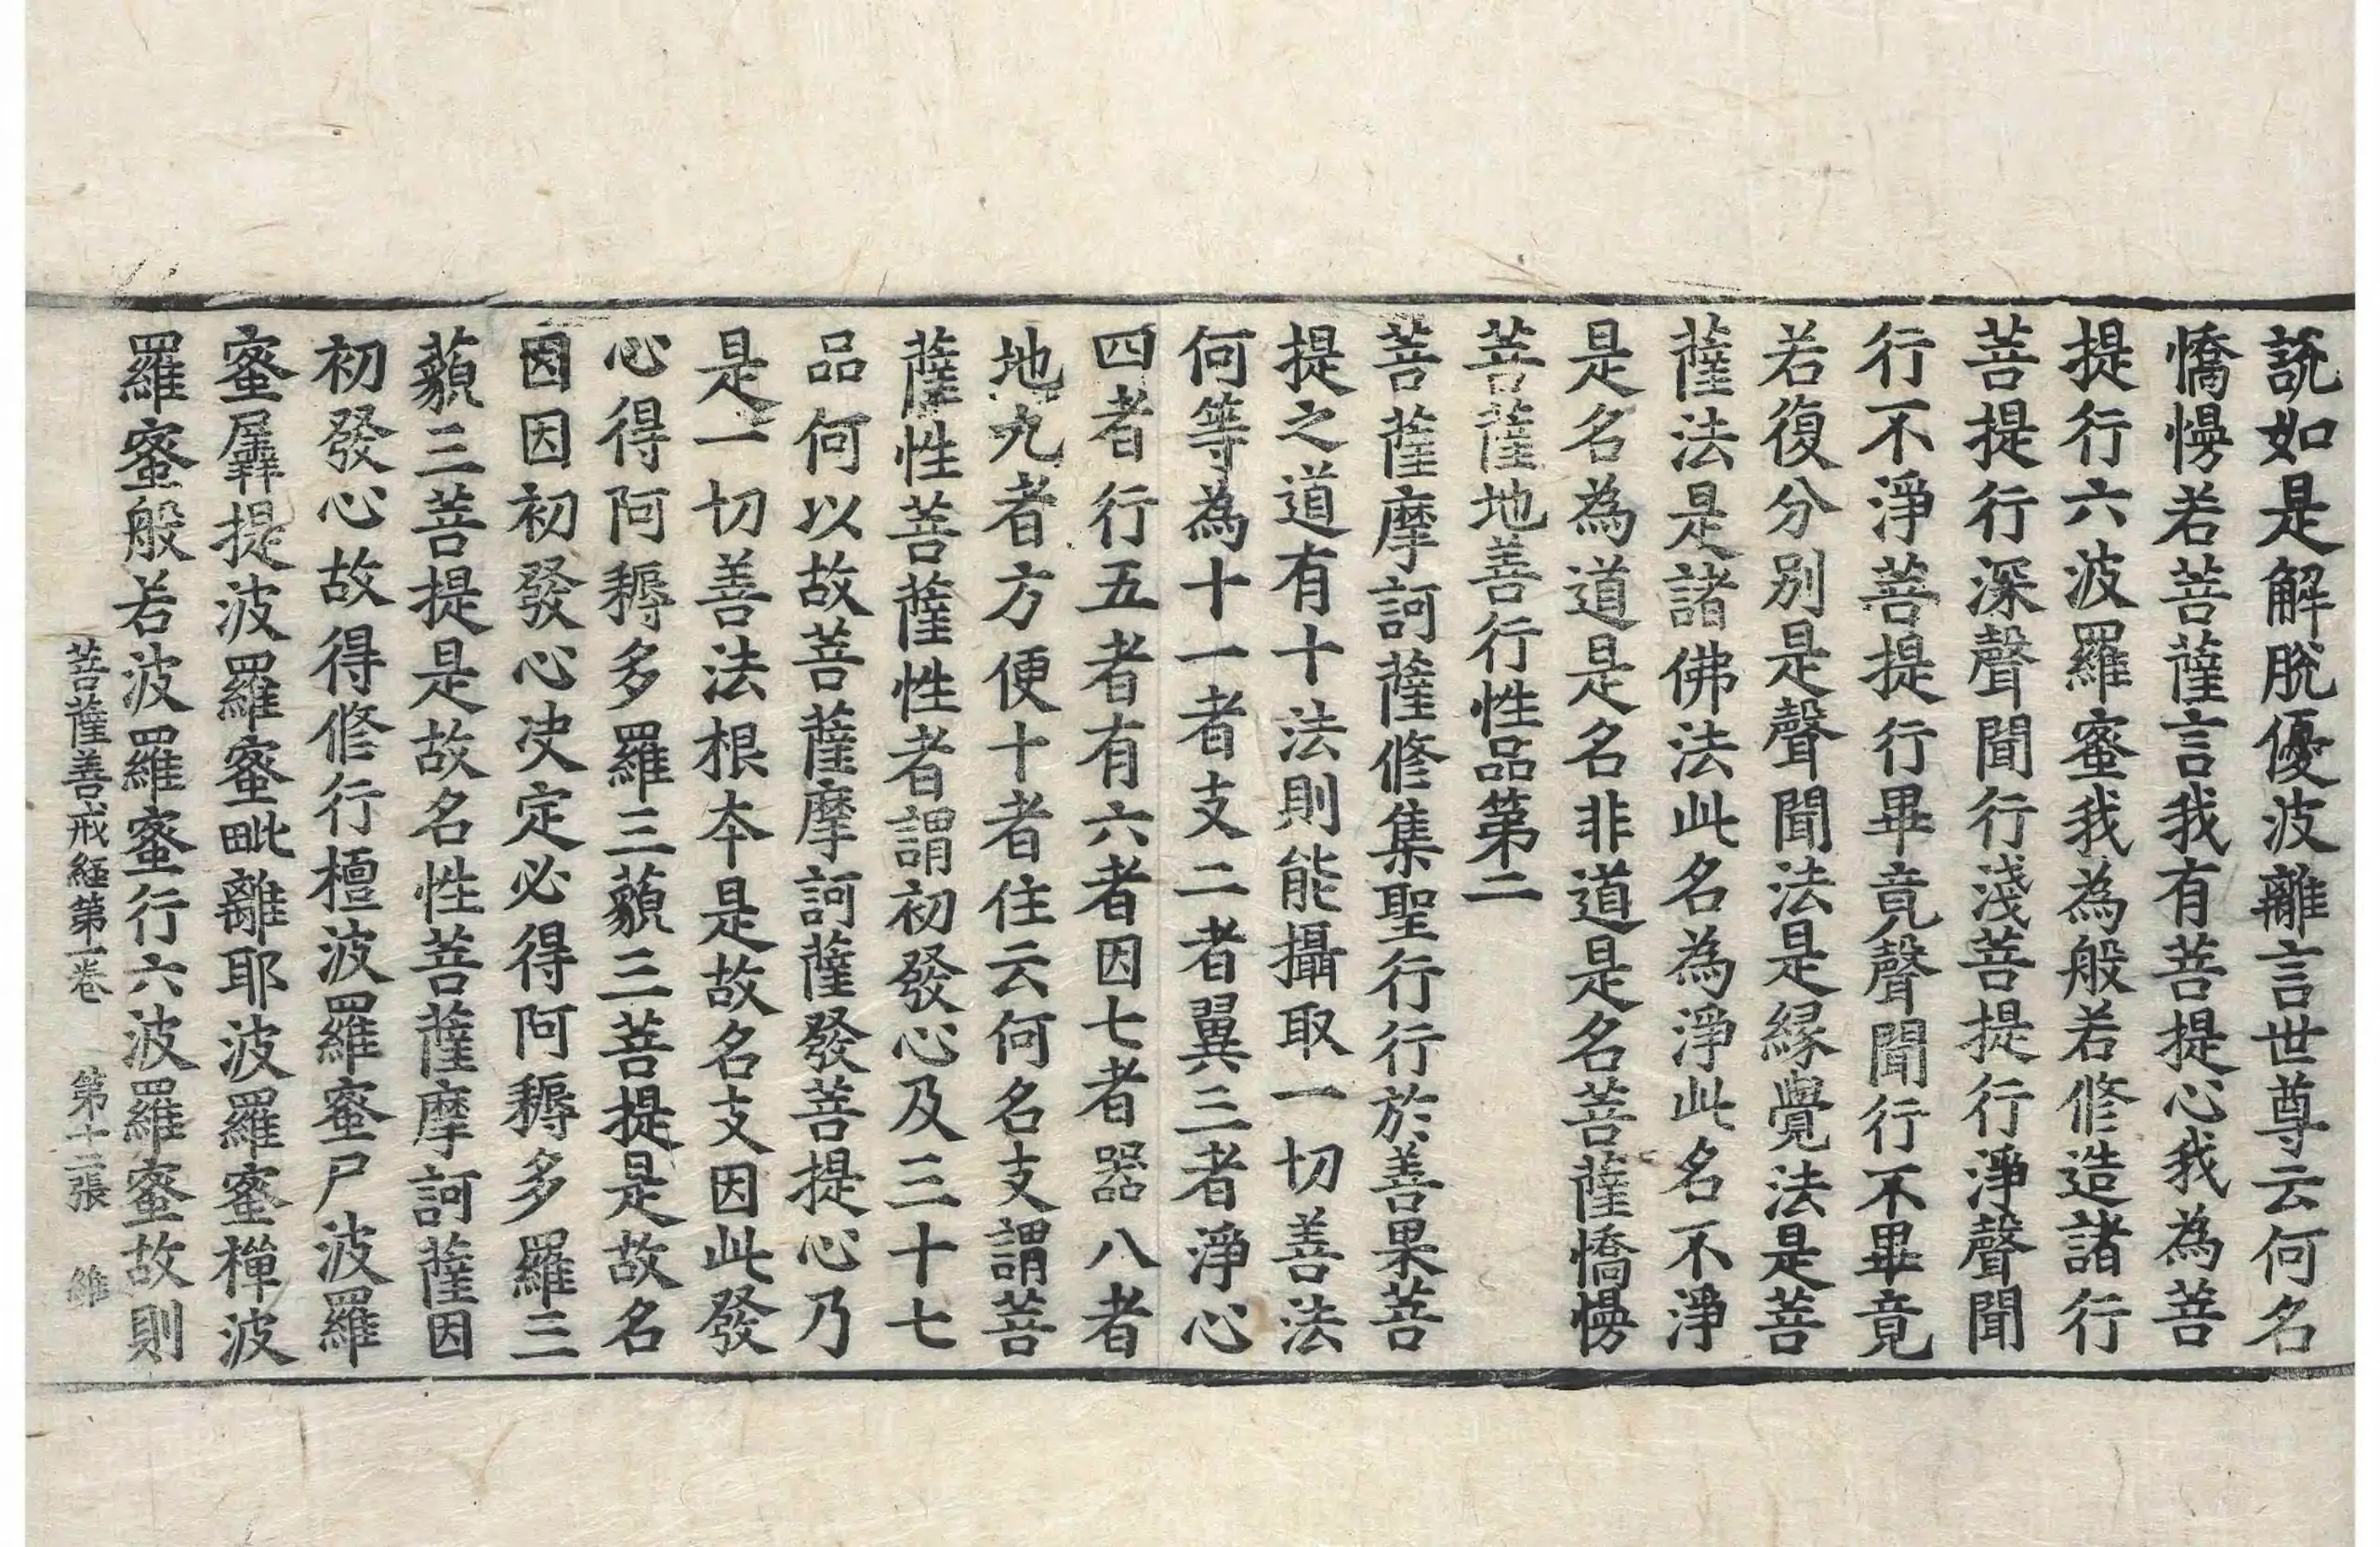 說如是解脫優波離言世尊云何名
憍慢若菩薩言我有菩提心我為菩
提行六波羅蜜我為般若修造諸行
菩提行深聲聞行淺菩提行淨聲聞
行不淨菩提行畢竟聲聞行不畢竟
若復分別是聲聞法是緣覺法是菩
薩法是諸佛法此名為淨此名不淨
是名為道是名非道是名菩薩憍慢
菩薩地善行性品第二
菩薩摩訶薩修集聖行行於善果菩
提之道有十法則能攝取一切善法
何等為十一者支二者翼三者淨心
四者行五者有六者因七者器八者
地九者方便十者住云何名支謂菩
薩性菩薩性者謂初發心及三十七
品何以故菩薩摩訶薩發菩提心乃
是一切善法根本是故名支因此發
心得阿耨多羅三藐三菩提是故名
因因初發心決定必得阿耨多羅三
藐三菩提是故名性菩薩摩訶薩因
初發心故得修行檀波羅蜜尸波羅
蜜羼提波羅蜜毗離耶波羅蜜禪波
羅蜜般若波羅蜜行六波羅蜜故則
菩薩善戒經第一卷 第十二張